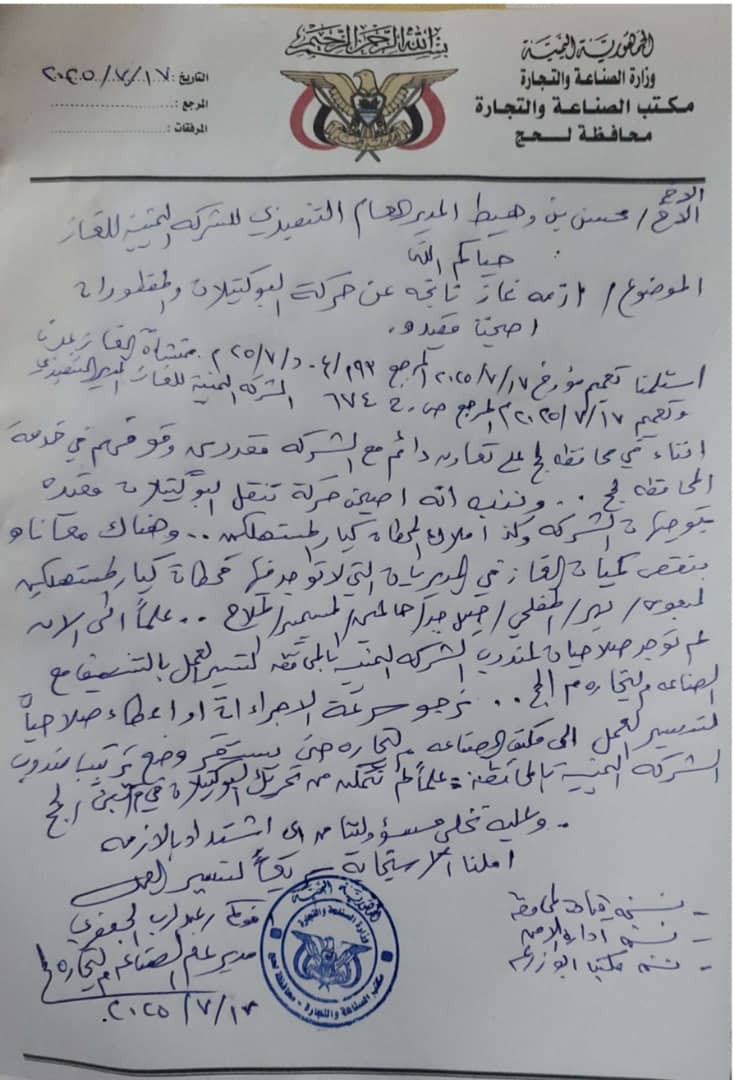 بسم الله الرحمن الرحيم
الجمهورية اليمنية
وزارة الصناعة والتجارة
مكتب الصناعة والتجارة
محافظة لحج
التاريخ: ٢٠٢٥/٧/١٧
المرجع:
المرفقات:
الاخ
الاخ/ محسن بن وهيط المدير العام التنفيذي للشركه اليمنية للغاز
حياكم الله
الموضوع/ ازمه غاز ناتجه عن حركة البوكتيلات والمقطورات
اصبحنا مقيدو.
استلمنا تعميم مؤرخ ٢٠٢٥/٧/١٧ المرجع ٢٠٢٥/٧/د٠٠٤/٢٩٣ منشأة الغاز بعدن
وتعميم ٢٠٢٥/٧/١٧ المرجع ص ر ح ٦٧٤ الشركه اليمنية للغاز المدير التنفيذي
اننا في محافظه لحج على تعاون دائم مع الشركه مقدرين وقوفهم في خدمة
المحافظه لحج .. وننبه انه اصبحن حركة تنقل البوكتيلات مقيده
بتوجهات الشركه وكذا املاك المحطات كبار المستهلكين .. وهناك معاناه
بنقص كميات الغاز في المديريات التي لا توجد فيها محطات كبار المستهلكين
حالمين/ المسيمير/ الملاح .. علماً الى الان
لم توجد صلاحيات لمندوب الشركه اليمنيه بالمحافظه لتسيير العمل بالتنسيق مع
الصناعه والتجاره م/لحج .. نرجو سرعة الاجراءات او اعطاء صلاحيات
لتسيير العمل الى مكتب الصناعه والتجاره حتى يستقر وضع ترتيب مندوب
الشركه اليمنية بالمحافظة. علماً لم نتمكن من تحريك البوكتيلات في لحج
. وعليه نخلي مسؤوليتنا من اي اشتداد بالازمه
املنا الاستجابة لتسيير العمل
عبدالرب الجعفري
مدير عام الصناعه والتجاره لحج
٢٠٢٥/٧/١٧
- نسخه قيادة المحافظه
- نسخه اداره الامن
- نسخه مكتب ابو زرعه
الجمهورية اليمنية
وزارة الصناعة والتجارة
مكتب الصناعة والتجارة - محافظة لحج